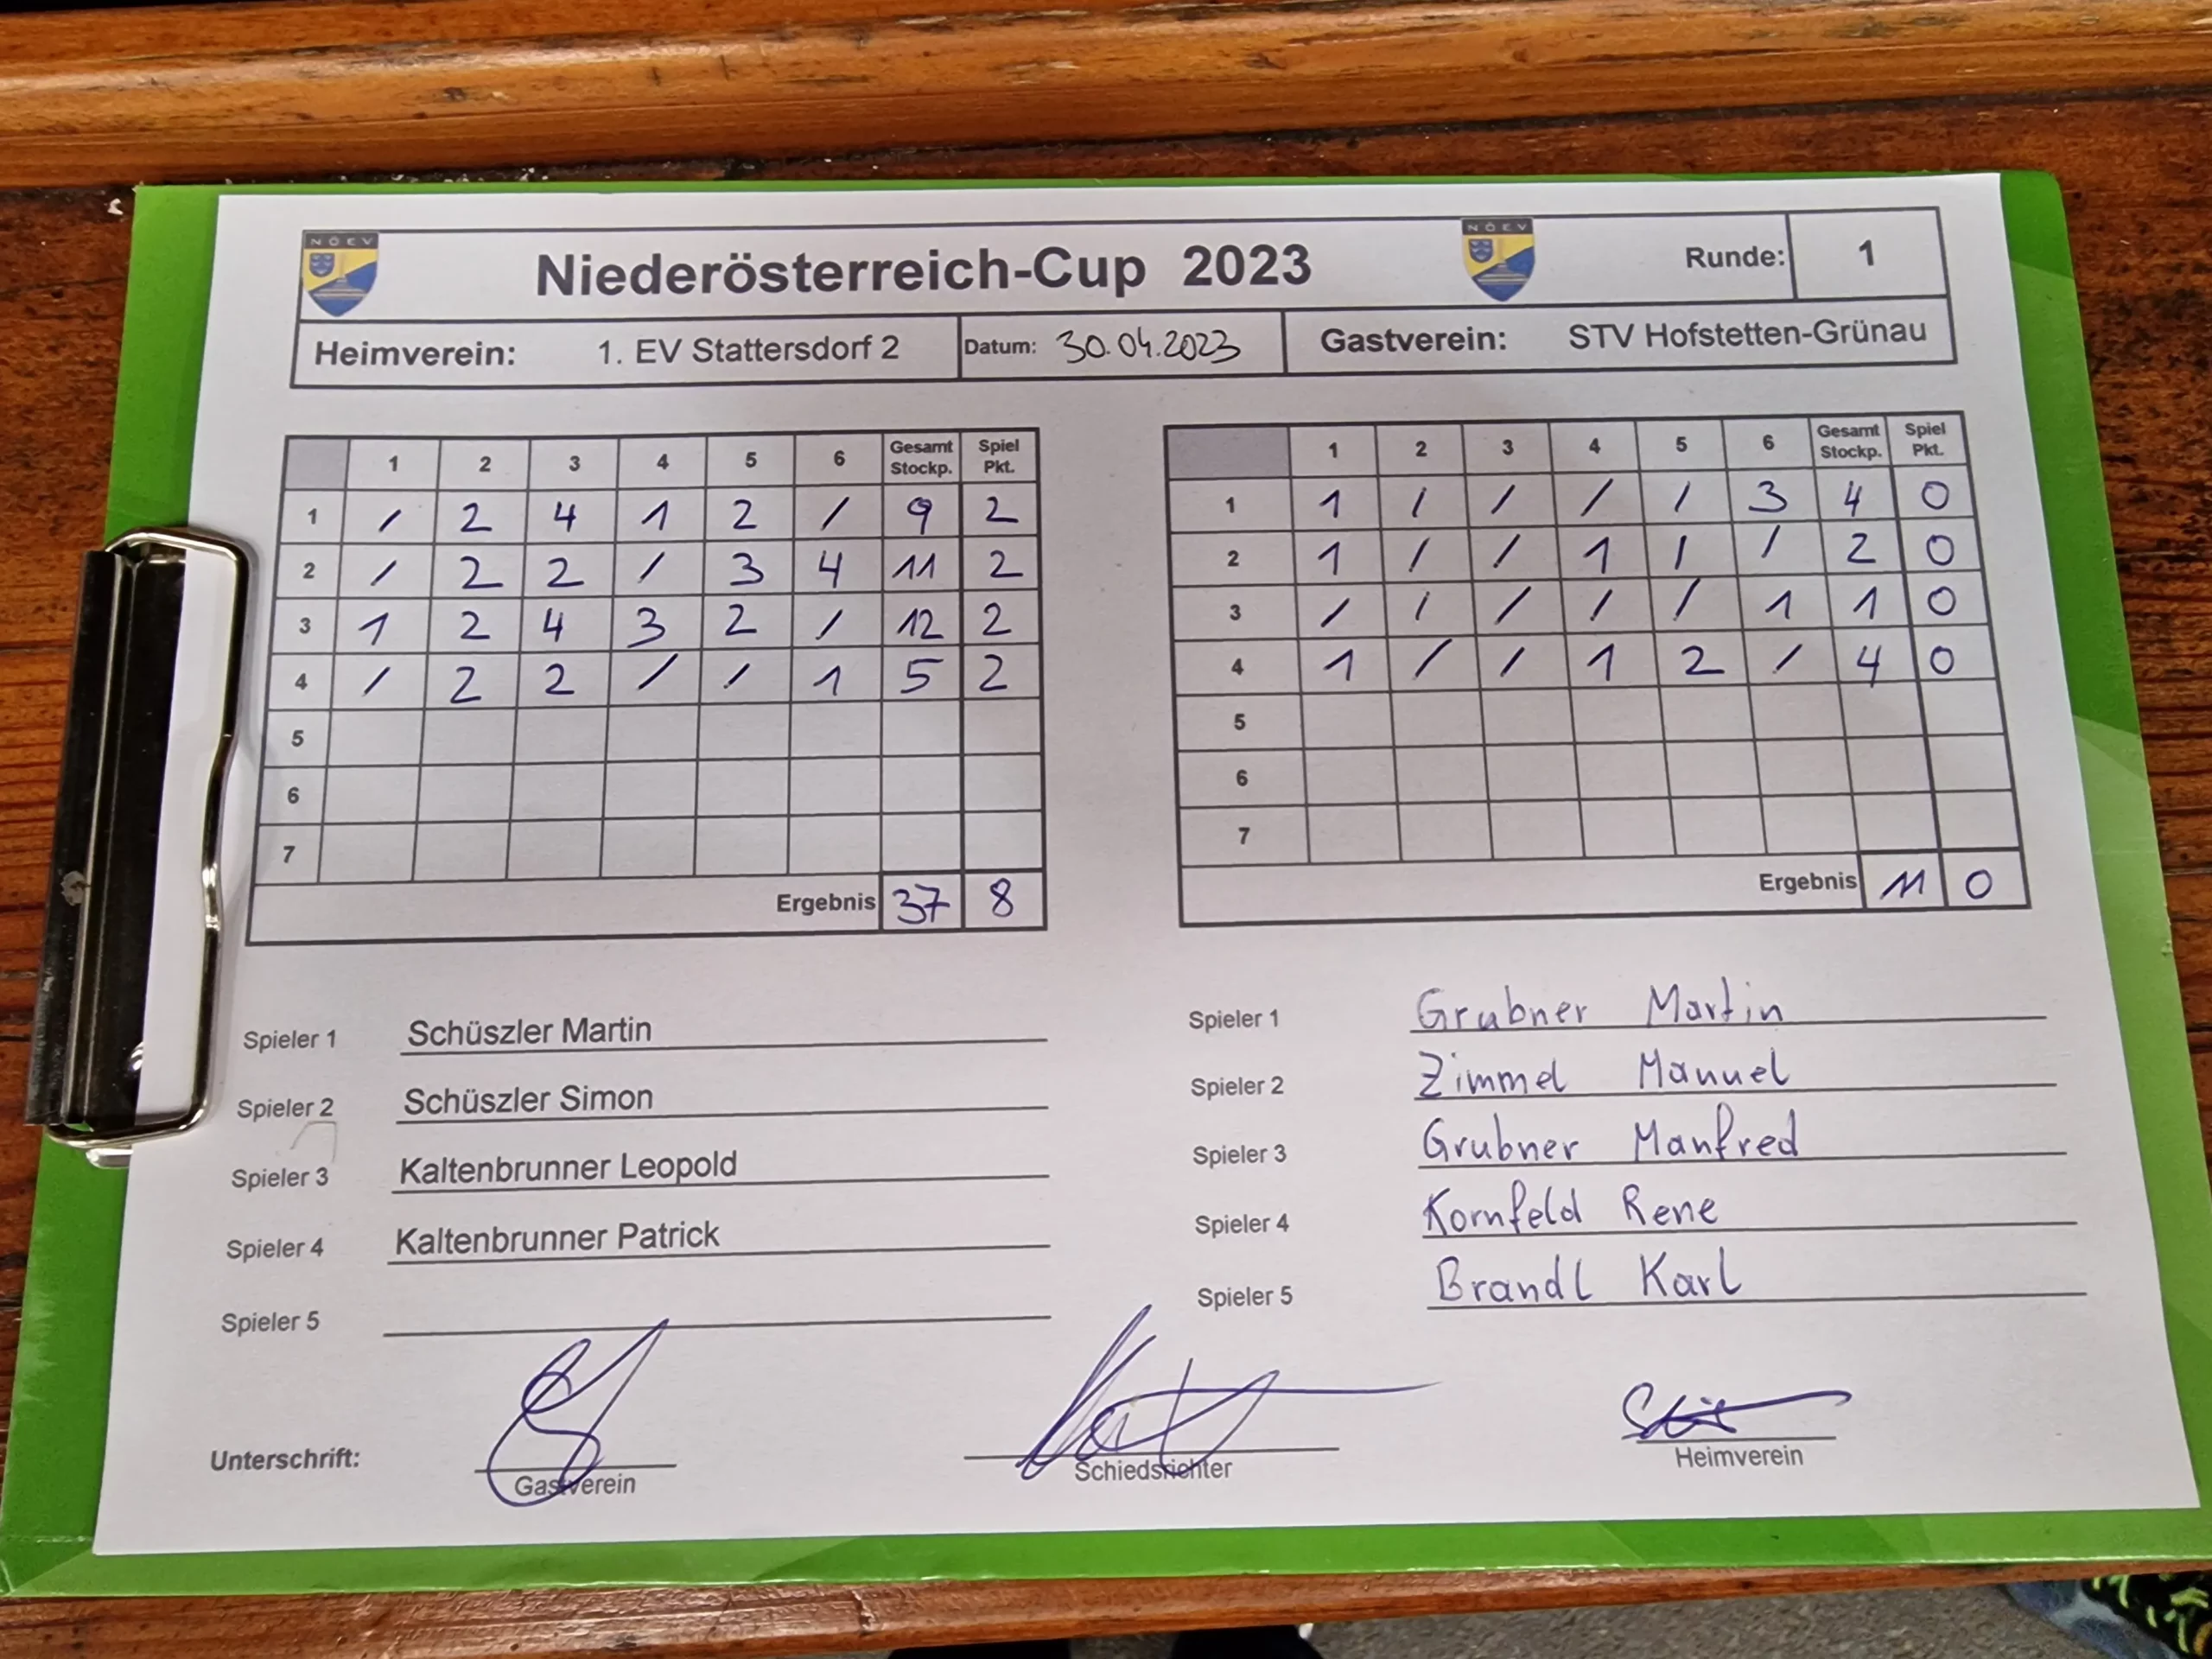 NÖEV
Niederösterreich-Cup 2023
NÖEV
Runde: 1
Heimverein: 1. EV Stattersdorf 2 Datum: 30.04.2023 Gastverein: STV Hofstetten-Grünau
1 2 3 4 5 6 Gesamt Stockp. Spiel Pkt.
1 / 2 4 1 2 / 9 2
2 / 2 2 / 3 4 11 2
3 1 2 4 3 2 / 12 2
4 / 2 2 / / 1 5 2
5
6
7
Ergebnis 37 8
1 2 3 4 5 6 Gesamt Stockp. Spiel Pkt.
1 1 / / / / 3 4 0
2 1 / / 1 / / 2 0
3 / / / / / 1 1 0
4 1 / / 1 2 / 4 0
5
6
7
Ergebnis 11 0
Spieler 1 Schüszler Martin
Spieler 2 Schüszler Simon
Spieler 3 Kaltenbrunner Leopold
Spieler 4 Kaltenbrunner Patrick
Spieler 5
Spieler 1 Grubner Martin
Spieler 2 Zimmel Manuel
Spieler 3 Grubner Manfred
Spieler 4 Kornfeld Rene
Spieler 5 Brandl Karl
Unterschrift:
Gastverein
Schiedsrichter
Heimverein